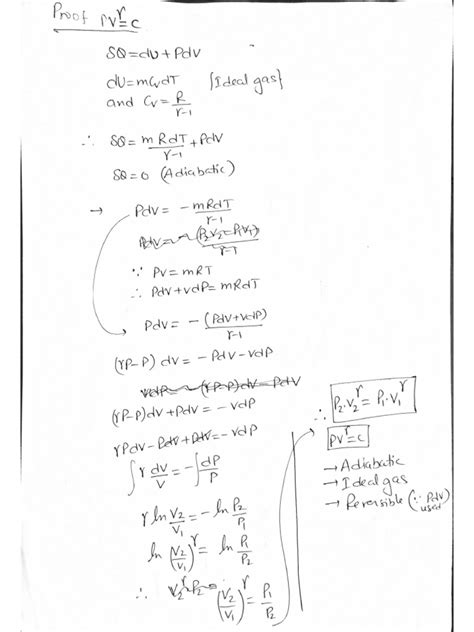 Proof PV^γ=C
δQ=dU+PdV
dU=mCvdT {Ideal gas}
and Cv=R/(γ-1)
∴ δQ=mRdT/(γ-1)+PdV
δQ=0 (Adiabatic)
→ PdV=-mRdT/(γ-1)
PdV=-(P2V2-P1V1)/(γ-1)
∵ PV=mRT
∴ PdV+VdP=mRdT
PdV=-(PdV+VdP)/(γ-1)
(γP-P)dV=-PdV-VdP
VdP=-(γP-P)dV-PdV
(γP-P)dV+PdV=-VdP
γPdV-PdV+PdV=-VdP
∫γ dV/V=-∫dP/P
γ ln V2/V1=-ln P2/P1
ln (V2/V1)^γ=ln P1/P2
∴ V2^γP2= (V2/V1)^γ=P1/P2
∴ P2.V2^γ=P1.V1^γ
PV^γ=C
→ Adiabatic
→ Ideal gas
→ Reversible (∵ PdV used)